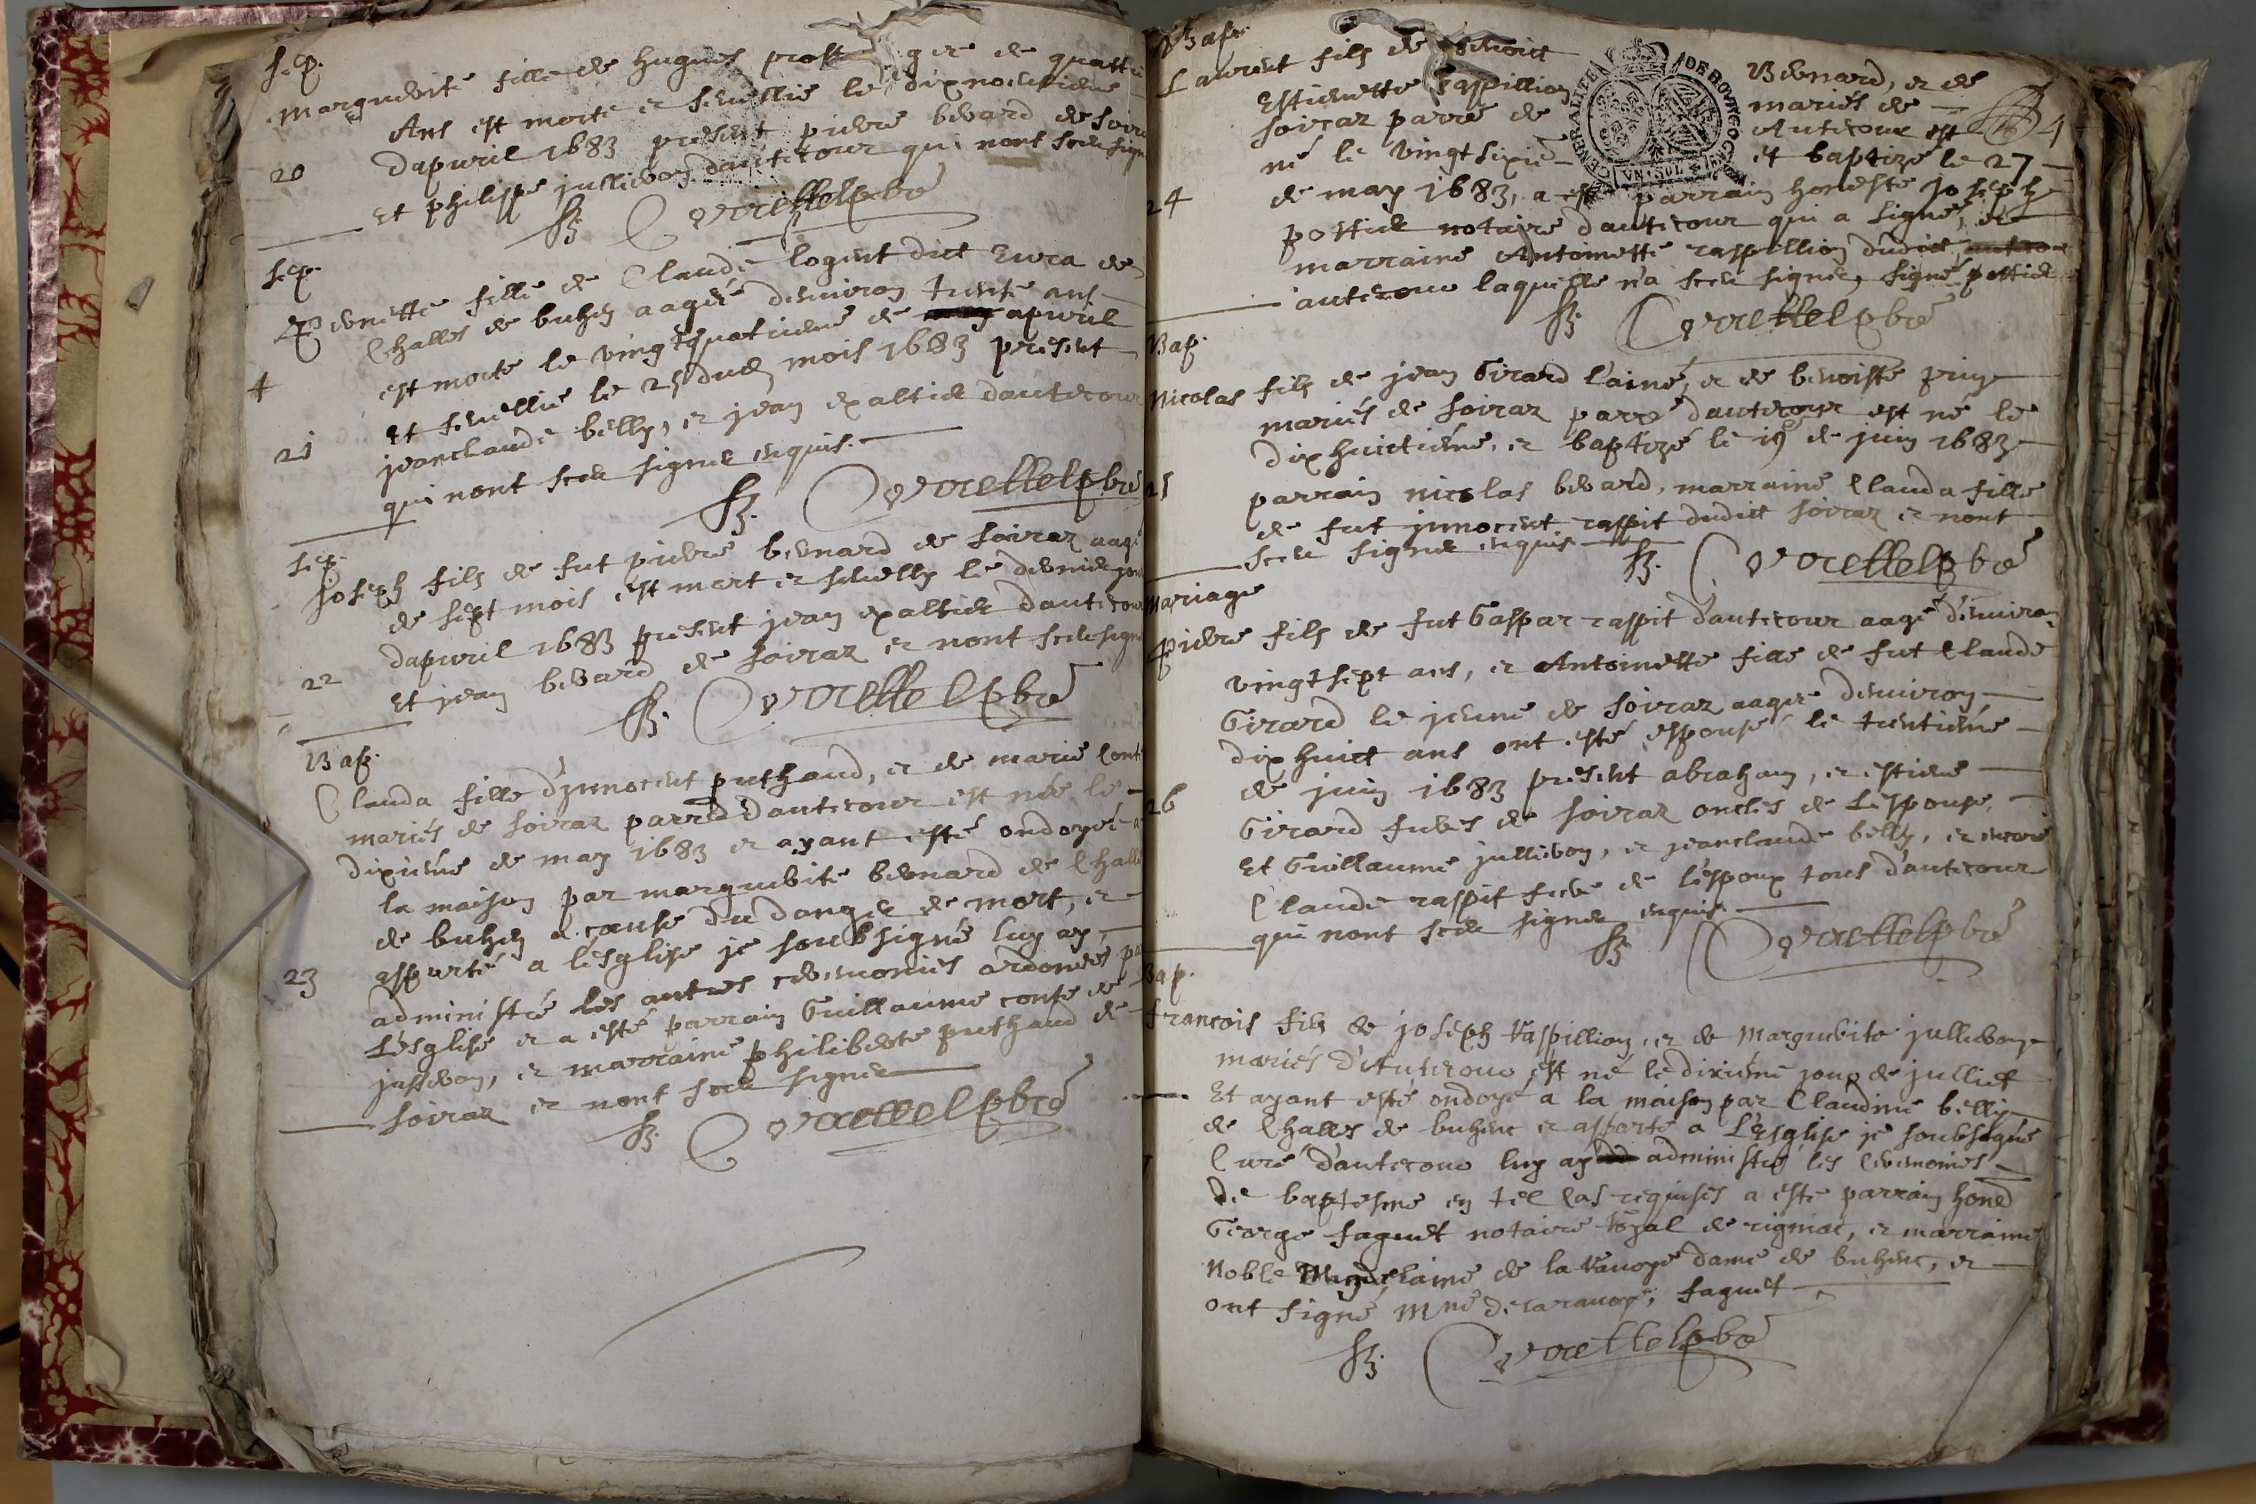 Sep.
Marguerite fille de hugues prost agée de quattre
Ans est morte et sevellie le dixnoeufvieme
20 dapvril 1683 present pierre bevard de soiraz
Et philippe jullieron dautecour qui nont sceu signe
Corcellet pbre
Sep.
Pernette fille de Claude logent dict
Challes de buhen aagée denviron trente ans
4 est morte le vingtquatrieme de apvril
Et sevellie le 25 dud mois 1683 present
21 jeanclaude belly, et jean dautecour
qui nont sceu signer enquis.
Corcellet pbre
Sep.
Joseph fils de fut pierre bernard de soiraz aagé
de sept mois est mort et sevelly le dernier jour
dapvril 1683 present jean dautecour
22 Et jean bevard de soiraz et nont sceu signe
Corcellet pbre
Bap.
Clauda fille d'jnnocent puthaud, et de marie Conte
mariés de soiraz parre d'autecour est née le
dixieme de may 1683 et ayant esté ondoyée a
la maison par marguerite bernard de Challes
de buhen a cause du danger de mort, et
23 apportée a lesglise je soubsigné luy ay
administré les autres ceremonies ordonées par
L'esglise et a esté parrain Guillaume conte de
et marraine philiberte puthaud de
soiraz et nont sceu signer
Corcellet pbre
Bap.
Laurent fils de benoict Bernard, et de
Estienette Raspillion mariés de 4
soiraz parre de Autecour est
né le vingtsixie et baptizé le 27
24 de may 1683, a esté parrain honeste joseph
postier notaire d'autecour qui a signé, et
marraine Antoinette raspillion dudict
autecour laquelle n'a sceu signer, signé postier
Corcellet pbre
Bap.
Nicolas fils de jean Girard l'ainé, et de benoiste
mariés de soiraz parre d'autecour est né le
dixhuictieme, et baptizé le 19 de juin 1683
25 parrain nicolas bevard, marraine Clauda fille
de fut jnnocent raspit dudict soiraz et nont
sceu signer enquis
Corcellet pbre
Mariage
Pierre fils de fut Gaspar raspit d'autecour aagé d'environ
vingtsept ans, et Antoinette fille de fut Claude
Girard le jeune de soiraz aagée denviron
dixhuict ans ont esté espousé le trentieme
de juin 1683 present abraham, et estiene
26 Girard freres de soiraz oncles de L'espouse,
Et Guillaume jullieron, et jeanclaude belly, et encore
Claude raspit frere de l'espoux tous d'autecour
qui nont sceu signer enquis.
Corcellet pbre
Bap.
francois fils de joseph Raspillion, et de Marguerite jullieron
mariés d'Autecour est né le dixieme jour de julliet
Et ayant esté ondoyé a la maison par Claudine belly
de Challes de buhenc et apporté a L'esglise je soubsigné
Curé d'autecour luy ay administré les Ceremonies
de baptesme en tel Cas requises a esté parrain hone
George faguet notaire Royal de rignac, et marraine
Noble Magdelaine de la Ravoye dame de buhenc, et
ont signé, Mne delaravoye, faguet
Corcellet pbre